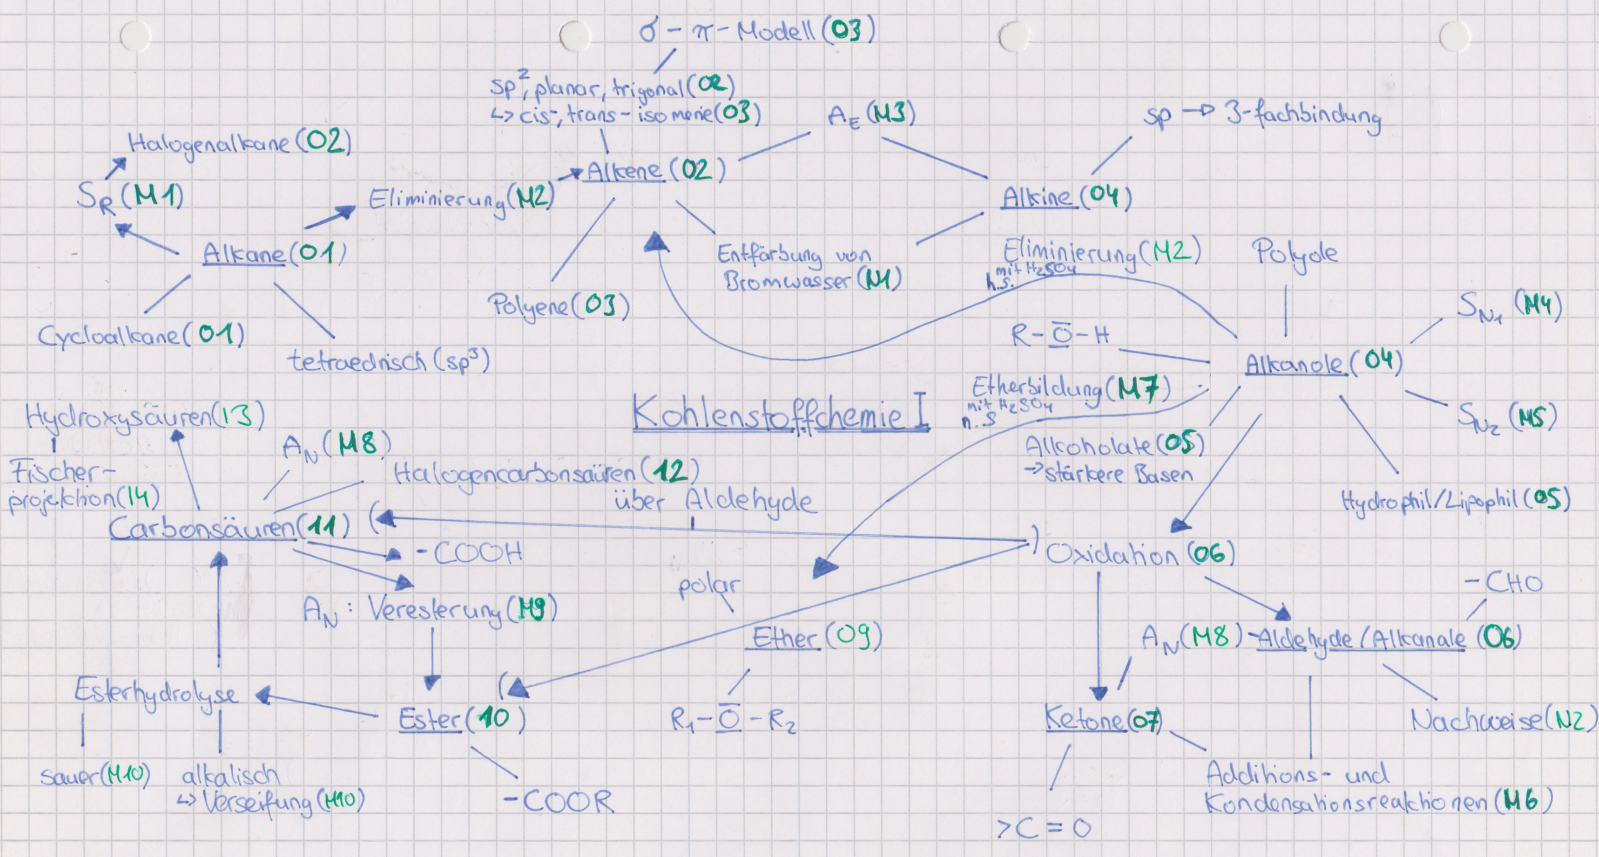 σ - π - Modell (O3)
sp², planar, trigonal (O2)
↳ cis-, trans-isomerie (O3)
A_E (M3)
sp → 3-fachbindung
Halogenalkane (O2)
S_R (M1)
Eliminierung (M2)
Alkene (O2)
Alkine (O4)
Alkane (O1)
Entfärbung von
Bromwasser (N1)
Eliminierung (M2)
mit H₂SO₄
h.S.
Polyole
Polyene (O3)
S_N1 (M4)
Cycloalkane (O1)
tetraedrisch (sp³)
R-O-H
Alkanole (O4)
Etherbildung (M7)
mit H₂SO₄
n.S
Kohlenstoffchemie I
S_N2 (M5)
Hydroxysäuren (13)
A_N (M8)
Alkoholate (O5)
→ stärkere Basen
Fischer-
projektion (14)
Halogencarbonsäuren (12)
über Aldehyde
Hydrophil/Lipophil (O5)
Carbonsäuren (11)
-COOH
Oxidation (O6)
polar
-CHO
A_N: Veresterung (M9)
Ether (O9)
A_N (M8)
Aldehyde/Alkanale (O6)
Esterhydrolyse
Ester (10)
R₁-O-R₂
Ketone (O7)
Nachweise (N2)
sauer (M10)
alkalisch
↳ Verseifung (M10)
-COOR
Additions- und
Kondensationsreaktionen (M6)
>C=O